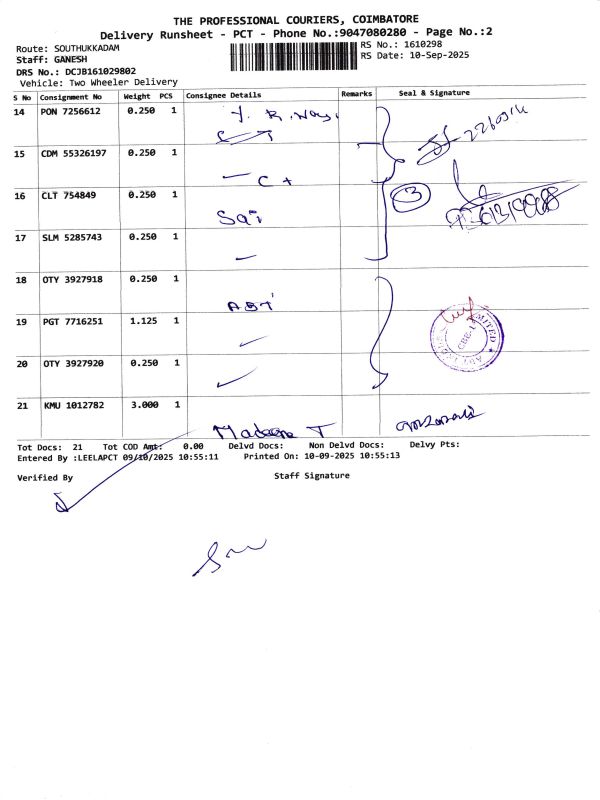 THE PROFESSIONAL COURIERS, COIMBATORE
Delivery Runsheet - PCT - Phone No.:9047080280 - Page No.:2
Route: SOUTHUKKADAM
RS No.: 1610298
Staff: GANESH
RS Date: 10-Sep-2025
DRS No.: DCJB161029802
Vehicle: Two Wheeler Delivery
S No Consignment No Weight PCS Consignee Details Remarks Seal & Signature
14 PON 7256612 0.250 1
15 CDM 55326197 0.250 1
16 CLT 754849 0.250 1
Sai
3
17 SLM 5285743 0.250 1
18 OTY 3927918 0.250 1
ABT
19 PGT 7716251 1.125 1
20 OTY 3927920 0.250 1
21 KMU 1012782 3.000 1
Tot Docs: 21 Tot COD Amt: 0.00 Delvd Docs: Non Delvd Docs: Delvy Pts:
Entered By :LEELAPCT 09/10/2025 10:55:11 Printed On: 10-09-2025 10:55:13
Verified By Staff Signature